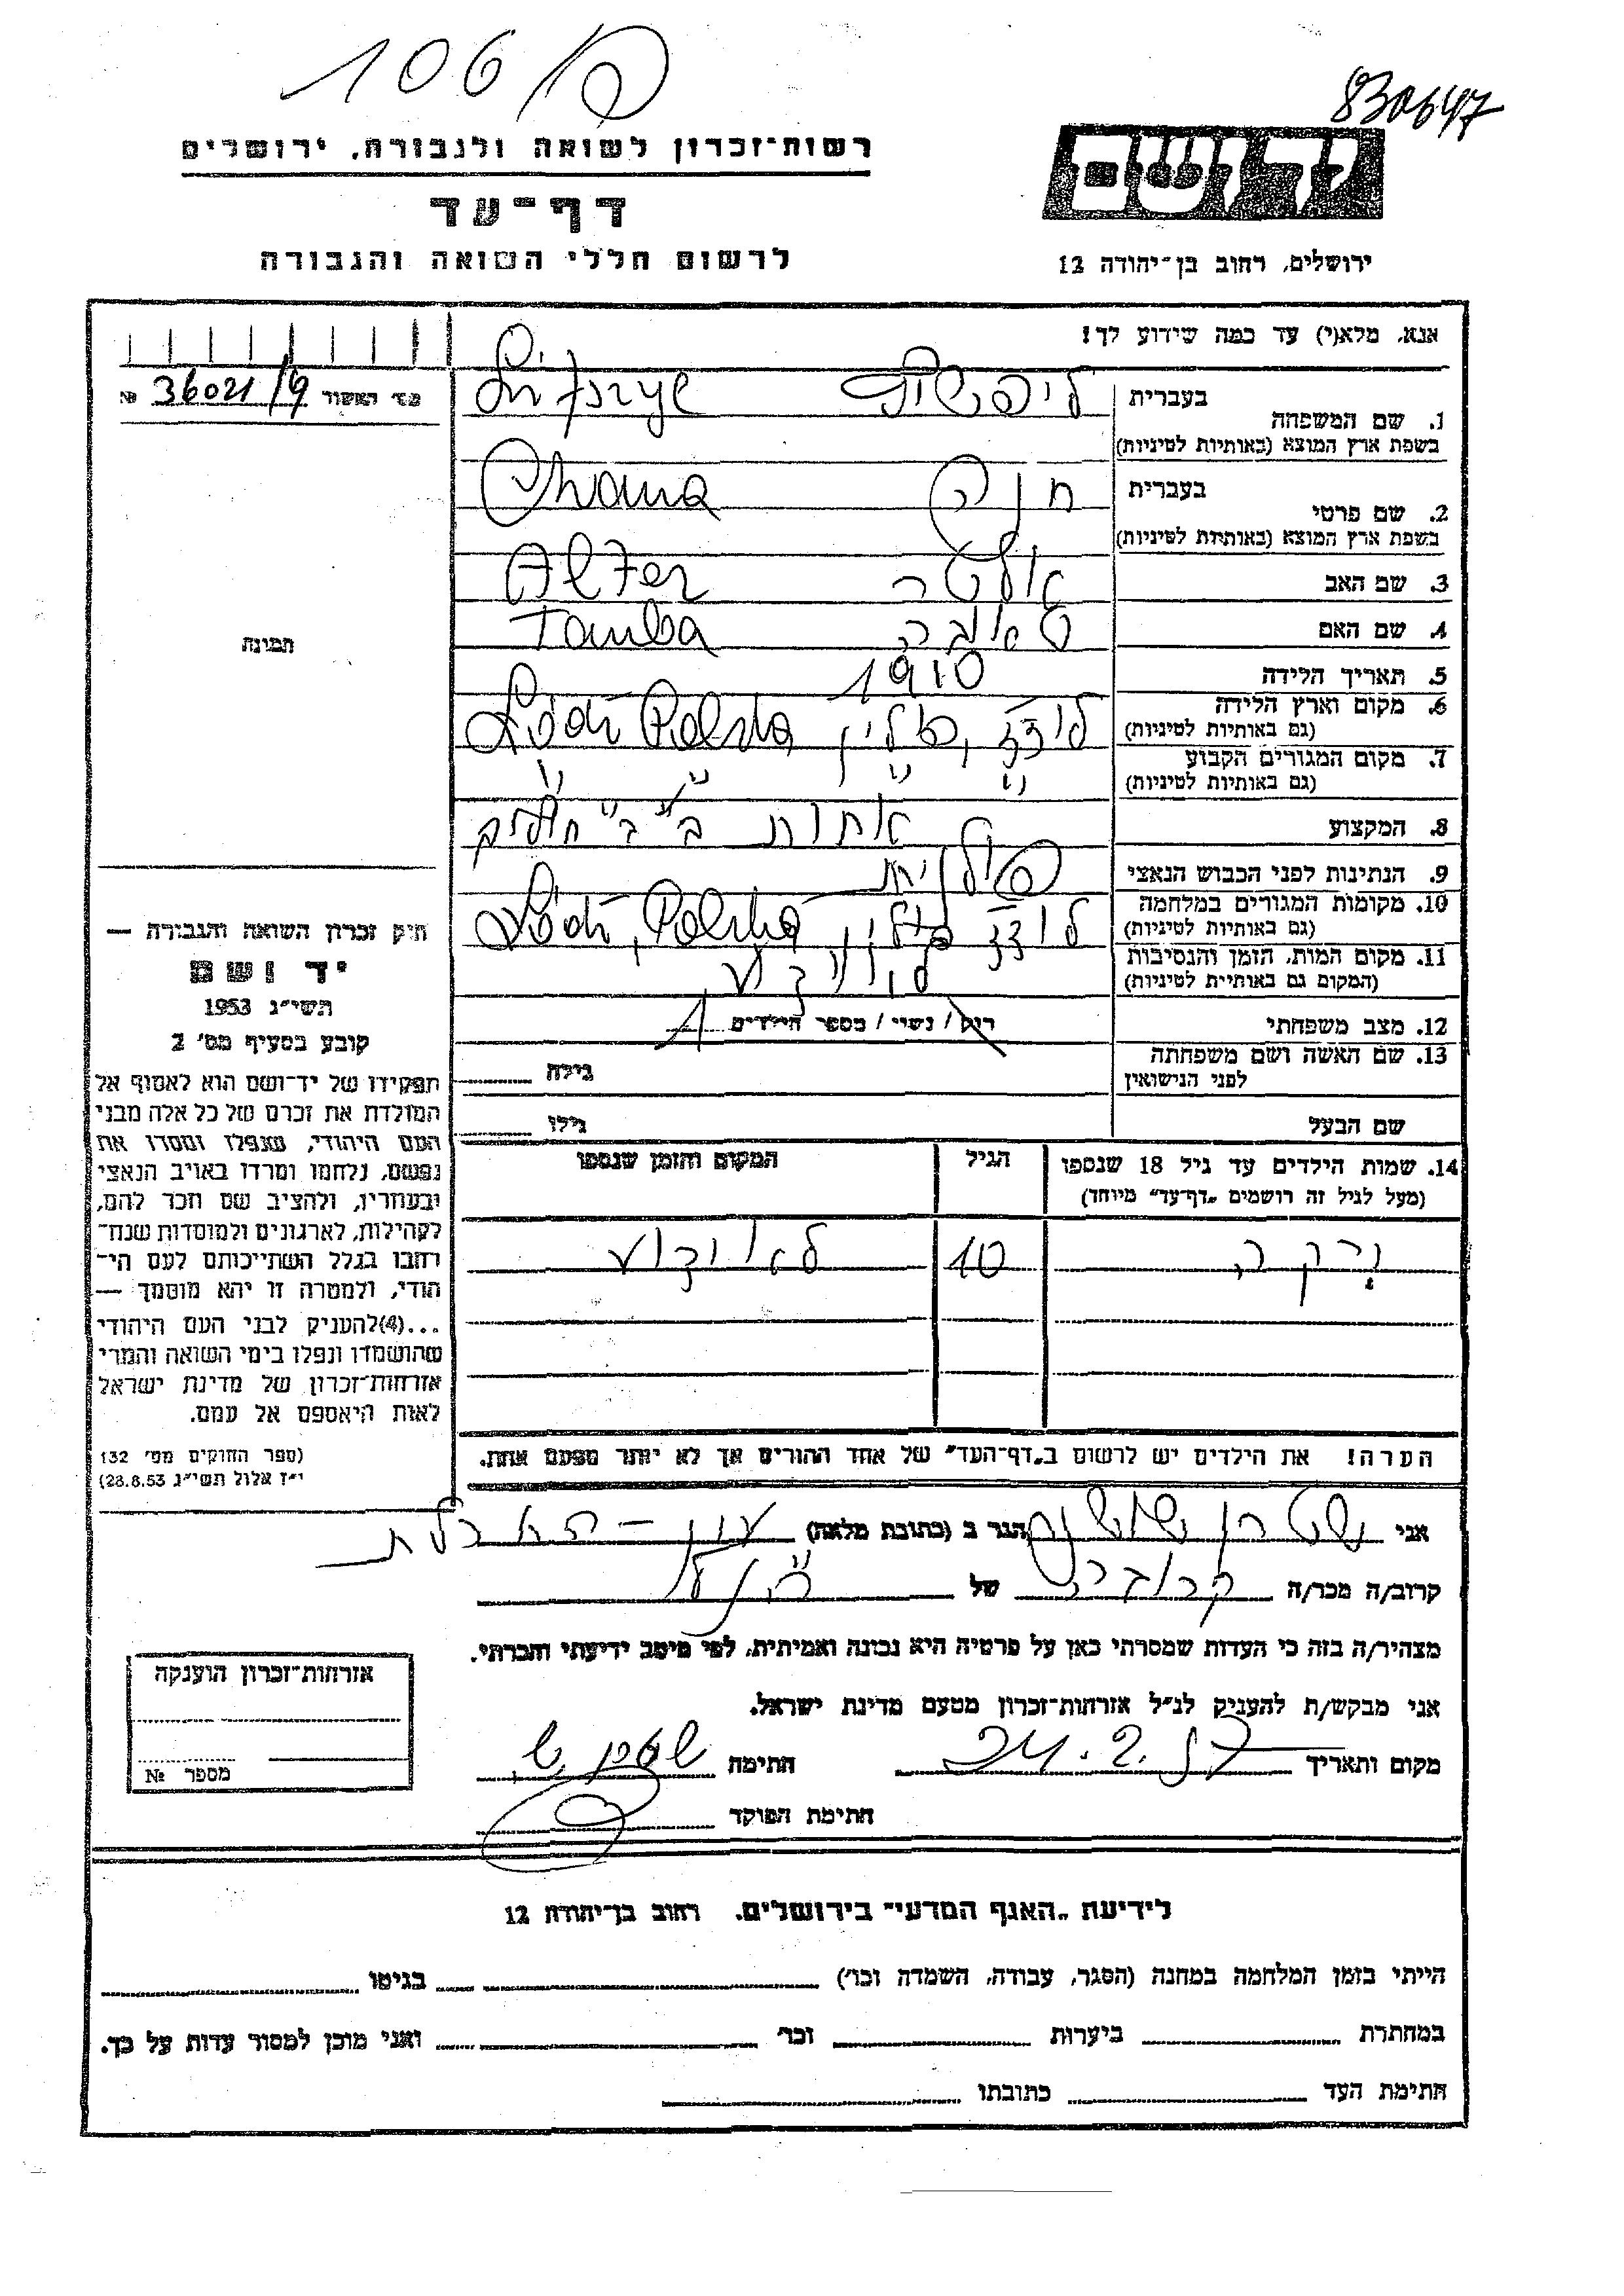 106 פ
830647
רשות־זכרון לשואה ולגבורה, ירושלים
דף־עד
לרשום חללי השואה והגבורה
יד ושם
ירושלים, רחוב בן־יהודה 12
אנא, מלא(י) עד כמה שידוע לך!
מס׳ האשור № 36021/9
תמונה
1. שם המשפחה
בעברית
בשפת ארץ המוצא (באותיות לטיניות)
2. שם פרטי
בעברית חנה Chana
בשפת ארץ המוצא (באותיות לטיניות)
3. שם האב Alter
4. שם האם טאובה Tauba
5. תאריך הלידה 1910
6. מקום וארץ הלידה לודז, פולין Łódź Polska
(גם באותיות לטיניות)
7. מקום המגורים הקבוע " " " "
(גם באותיות לטיניות)
8. המקצוע אחות ב"ב" חולים
9. הנתינות לפני הכבוש הנאצי פולנית
10. מקומות המגורים במלחמה לודז פולין Łódź, Polska
(גם באותיות לטיניות)
11. מקום המות, הזמן והנסיבות לא ידוע
(המקום גם באותיות לטיניות)
12. מצב משפחתי רווק / נשוי / מספר הילדים 1
13. שם האשה ושם משפחתה
לפני הנישואין
גילה
שם הבעל גילו
14. שמות הילדים עד גיל 18 שנספו הגיל המקום והזמן שנספו
(מעל לגיל זה רושמים „דף־עד” מיוחד)
10 לא ידוע
הערה! את הילדים יש לרשום ב„דף־העד” של אחד ההורים אך לא יותר מפעם אחת.
חוק זכרון השואה והגבורה —
יד ושם
תשי״ג 1953
קובע בסעיף מס׳ 2
תפקידו של יד־ושם הוא לאסוף אל
המולדת את זכרם של כל אלה מבני
העם היהודי, שנפלו ומסרו את
נפשם, נלחמו ומרדו באויב הנאצי
ובעוזריו, ולהציב שם וזכר להם,
לקהילות, לארגונים ולמוסדות שנח־
רבו בגלל השתייכותם לעם הי־
הודי, ולמטרה זו יהא מוסמך —
...(4)להעניק לבני העם היהודי
שהושמדו ונפלו בימי השואה והמרי
אזרחות־זכרון של מדינת ישראל
לאות היאספם אל עמם.
(ספר החוקים מס׳ 132
י״ז אלול תשי״ג 28.8.53)
אני שטרן הגר ב (כתובת מלאה)
קרוב/ה מכר/ה קרובה של הנ"ל
מצהיר/ה בזה כי העדות שמסרתי כאן על פרטיה היא נכונה ואמיתית, לפי מיטב ידיעתי והכרתי.
אני מבקש/ת להעניק לנ״ל אזרחות־זכרון מטעם מדינת ישראל.
מקום ותאריך 24.2.57 חתימה שטרן ש.
חתימת הפוקד
אזרחות־זכרון הוענקה
מספר №
לידיעת „האגף המדעי” בירושלים, רחוב בן־יהודה 12
הייתי בזמן המלחמה במחנה (הסגר, עבודה, השמדה וכו׳) בגיטו
במחתרת ביערות וכו׳ ואני מוכן למסור עדות על כך.
חתימת העד כתובתו